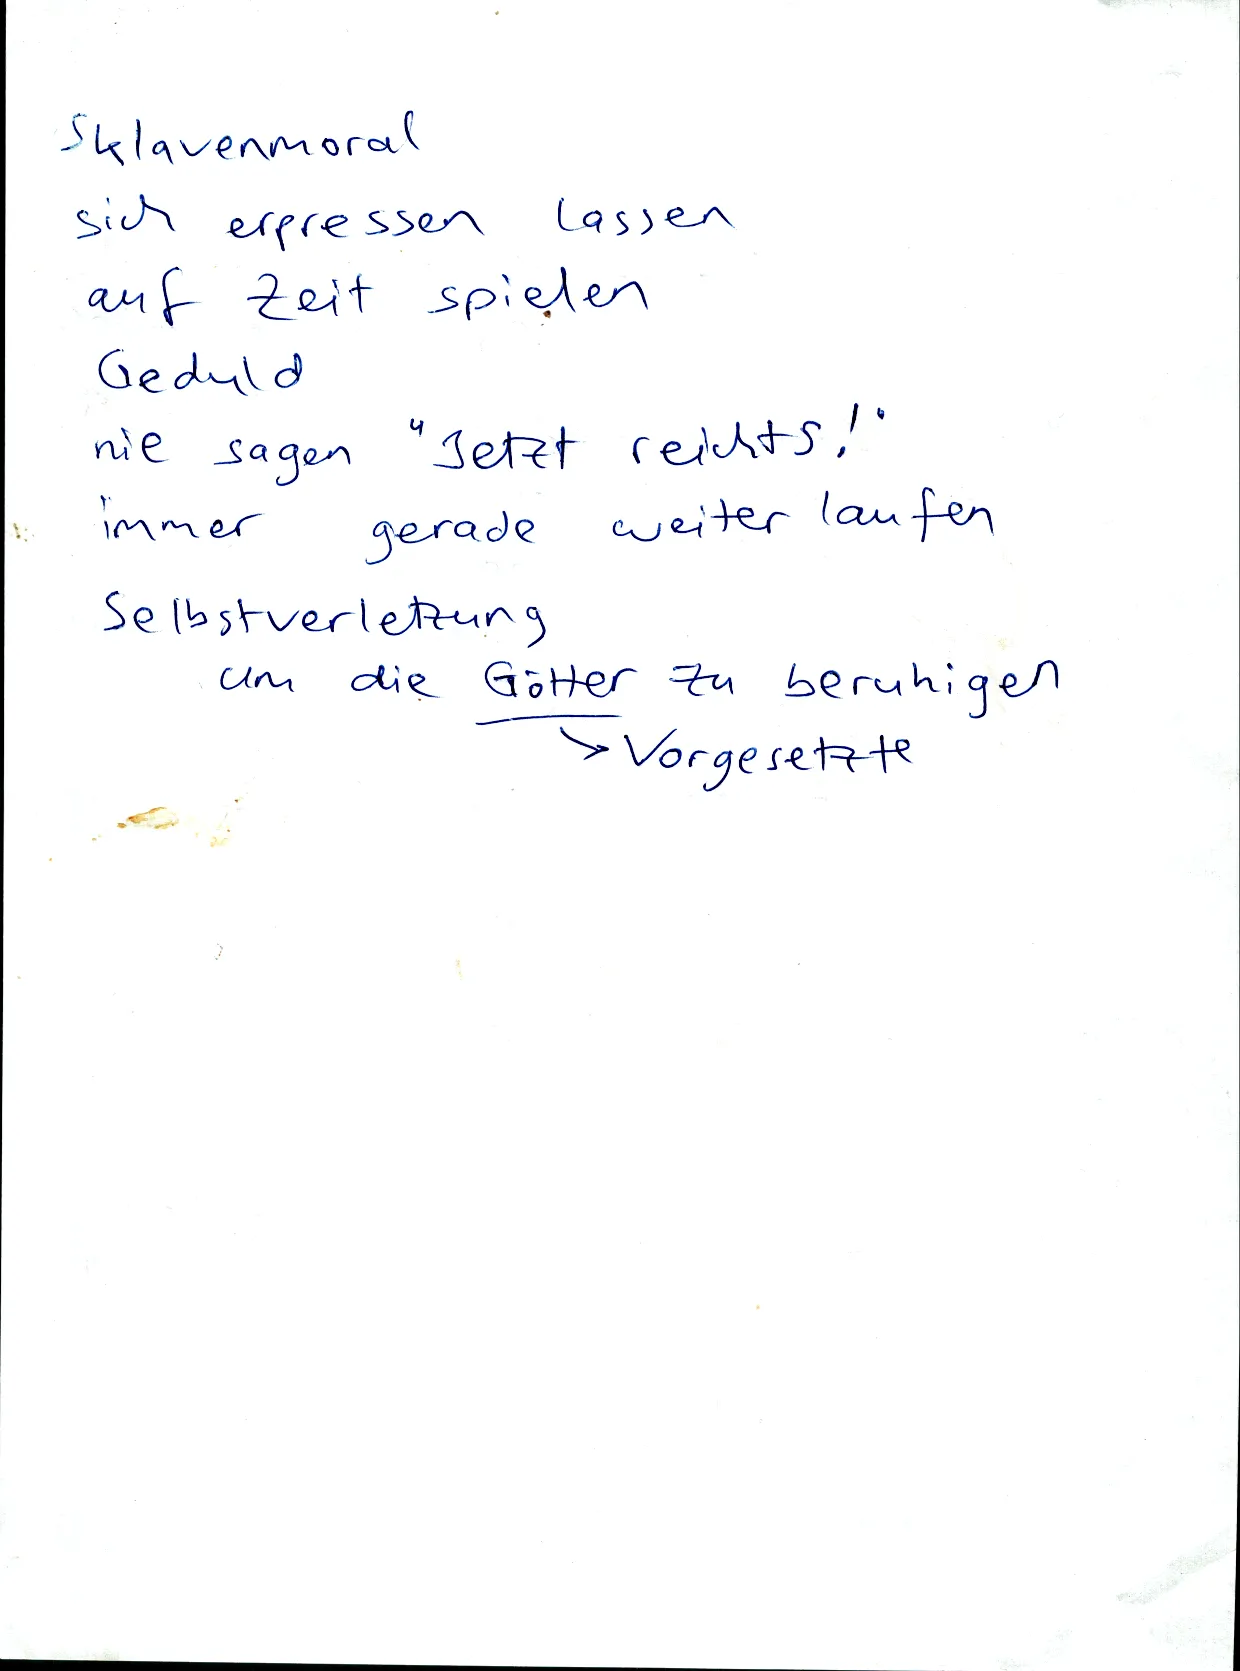 Sklavenmoral
sich erpressen lassen
auf Zeit spielen
Geduld
nie sagen "Jetzt reichts!"
immer gerade weiter laufen
Selbstverletzung
um die Götter zu beruhigen
> Vorgesetzte